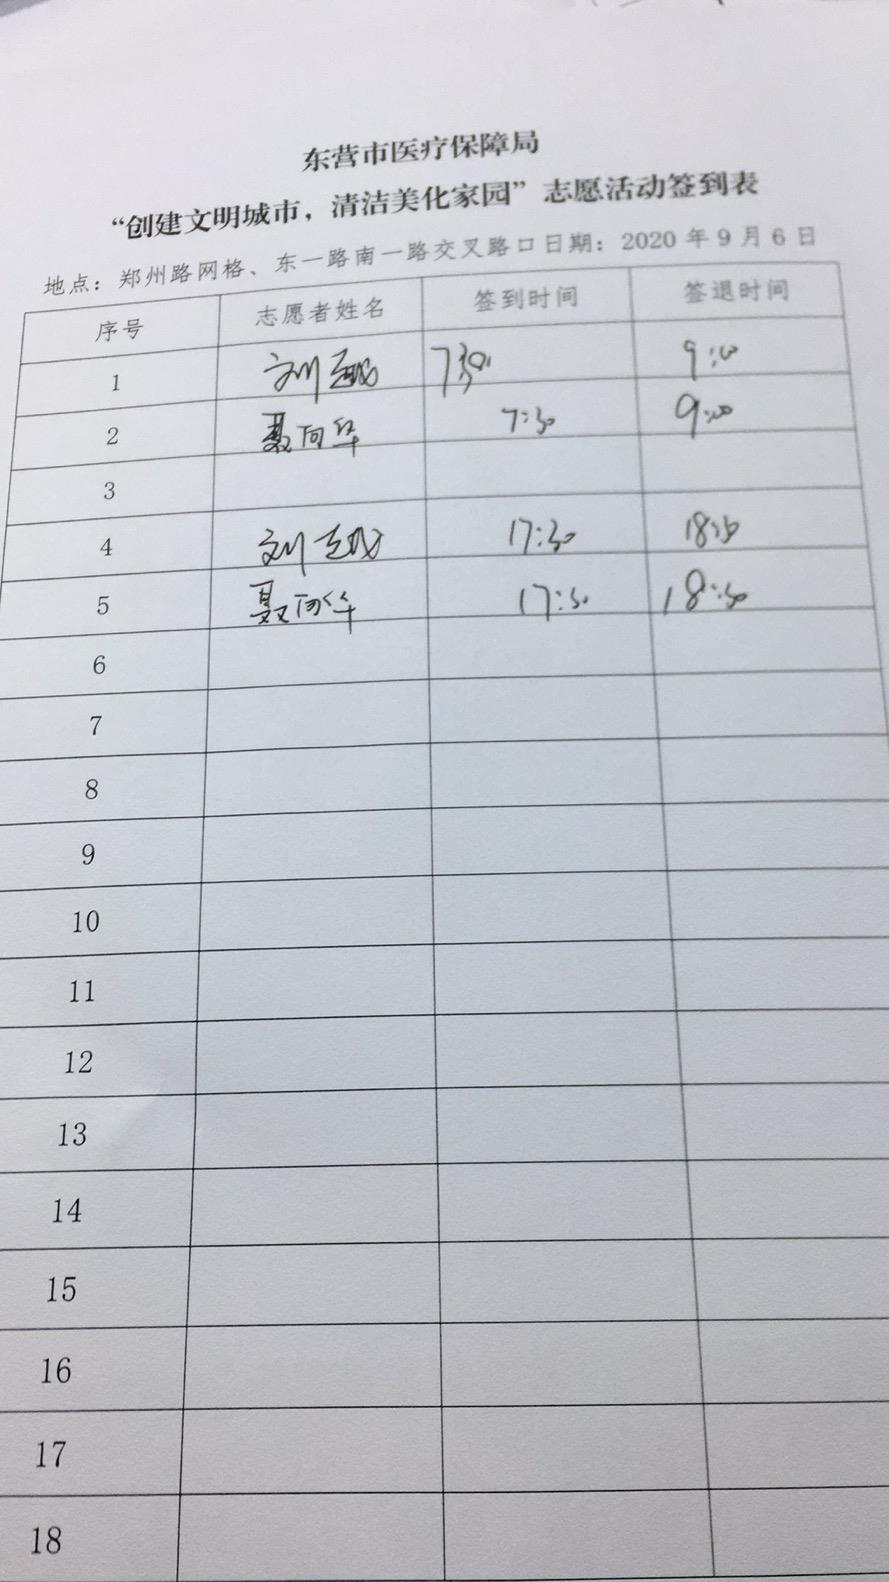 东营市医疗保障局
“创建文明城市，清洁美化家园”志愿活动签到表
地点：郑州路网格、东一路南一路交叉路口日期：2020年9月6日
序号 志愿者姓名 签到时间 签退时间
1 刘 7:30 9:00
2 聂向华 7:30 9:00
3
4 刘 17:30 18:30
5 聂向华 17:30 18:30
6
7
8
9
10
11
12
13
14
15
16
17
18